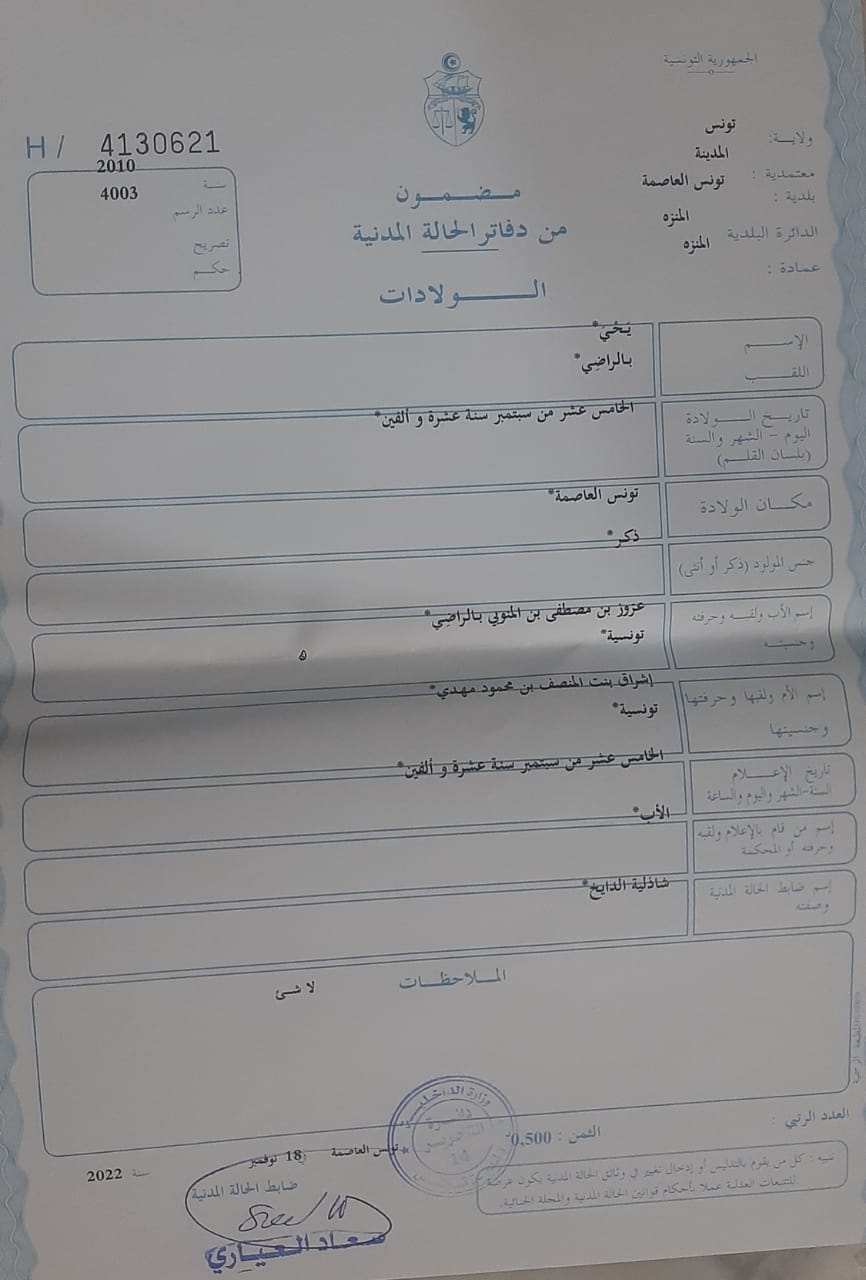 الجمهورية التونسية
ولاية: تونس
معتمدية : المدينة
بلدية : تونس العاصمة
الدائرة البلدية المنزه
عمادة : المنزه
H / 4130621
سنة 2010
عدد الرسم 4003
تصريح
حكم
مضمون
من دفاتر الحالة المدنية
الولادات
الإسم يَحْيَ*
اللقب بالراضِي*
تاريخ الولادة الخامس عشر من سبتمبر سنة عشرة و ألفين*
اليوم - الشهر والسنة
(بلسان القلم)
مكان الولادة تونس العاصمة*
جنس المولود (ذكر أو أنثى) ذكر*
إسم الأب ولقبه وحرفته عزوز بن مصطفى بن المنوبي بالراضِي*
وجنسيته تونسية*
إسم الأم ولقبها وحرفتها إشراق بنت المنصف بن محمود مهدي*
وجنسيتها تونسية*
تاريخ الإعلام الخامس عشر من سبتمبر سنة عشرة و ألفين*
السنة-الشهر واليوم والساعة
إسم من قام بالإعلام ولقبه الأب*
وحرفته أو المحكمة
إسم ضابط الحالة المدنية شاذلية الدايخ*
وصفته
الملاحظات
لا شئ
العدد الرتبي :
الثمن : 0,500
تونس العاصمة في 18 نوفمبر سنة 2022
ضابط الحالة المدنية
سعاد العياري
وزارة الداخلية
دائرة
14
تنبيه : كل من يقوم بالتدليس أو إدخال تغيير في وثائق الحالة المدنية يكون عرضة
للتتبعات العدلية عملا بأحكام قوانين الحالة المدنية والمجلة الجنائية.